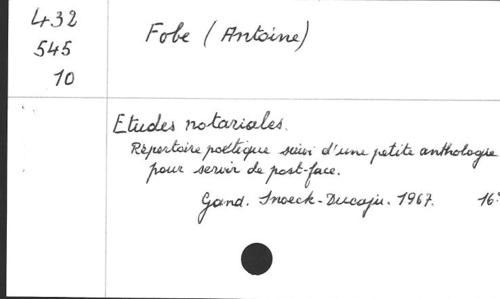 432
545
10
Fobe (Antoine)
Etudes notariales.
Répertoire poétique suivi d'une petite anthologie
pour servir de post-face.
Gand. Snoeck-Ducaju. 1967. 16°